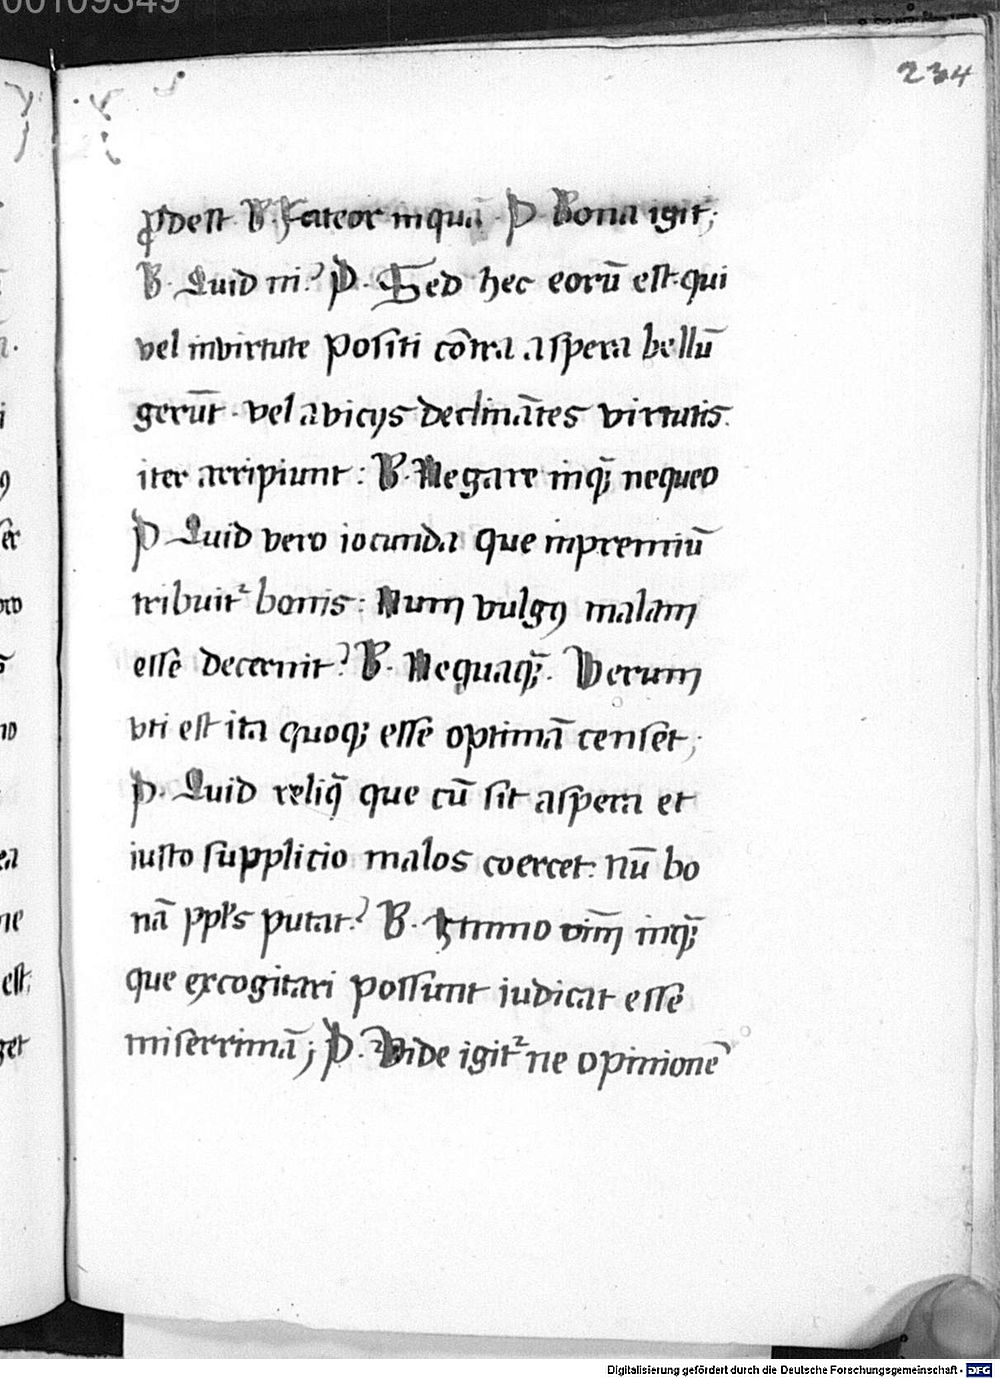 00109349
234
ꝓdest B. Fateor inquā · P Bona igit᷑;
B. Quid ni? P. Sed hec eorū est. qui
vel invirtute positi cōtra aspera bellū
gerūt · vel avicijs declinātes virtutis.
iter arripiunt : B. Negare inꝗ̄ nequeo
P Quid vero iocunda que inpremiū
tribuit᷑ bonis : Num vulgꝰ malam
esse decernit? B. Nequaꝗ̄. Verum
vti est ita quoqꝫ esse optimā censet;
P. Quid reliꝗ̄ que cū sit aspera et
iusto supplicio malos coercet: nū bo
nā ppl's putat? B. Immo oīm inꝗ̄
que excogitari possunt judicat esse
miserrimā; P. Vide igit᷑ ne opinionē
Digitalisierung gefördert durch die Deutsche Forschungsgemeinschaft - DFG